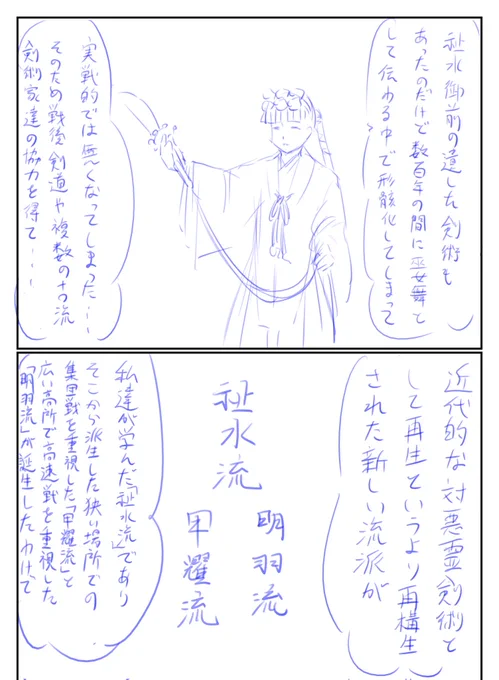 祉水御前の遺した剣術も
あったのだけど数百年の間に巫女舞と
して伝わる中で形骸化してしまって
実戦的では無くなってしまった…
そのため戦後剣道や複数の古流
剣術家達の協力を得て…
近代的な対悪霊剣術と
して再生というより再構生
された新しい流派が
祉水流
明羽流
甲耀流
私達が学んだ「祉水流」であり
そこから派生した狭い場所での
集団戦を重視した「甲耀流」と
広い高所で高速戦を重視した
「明羽流」が誕生したわけで